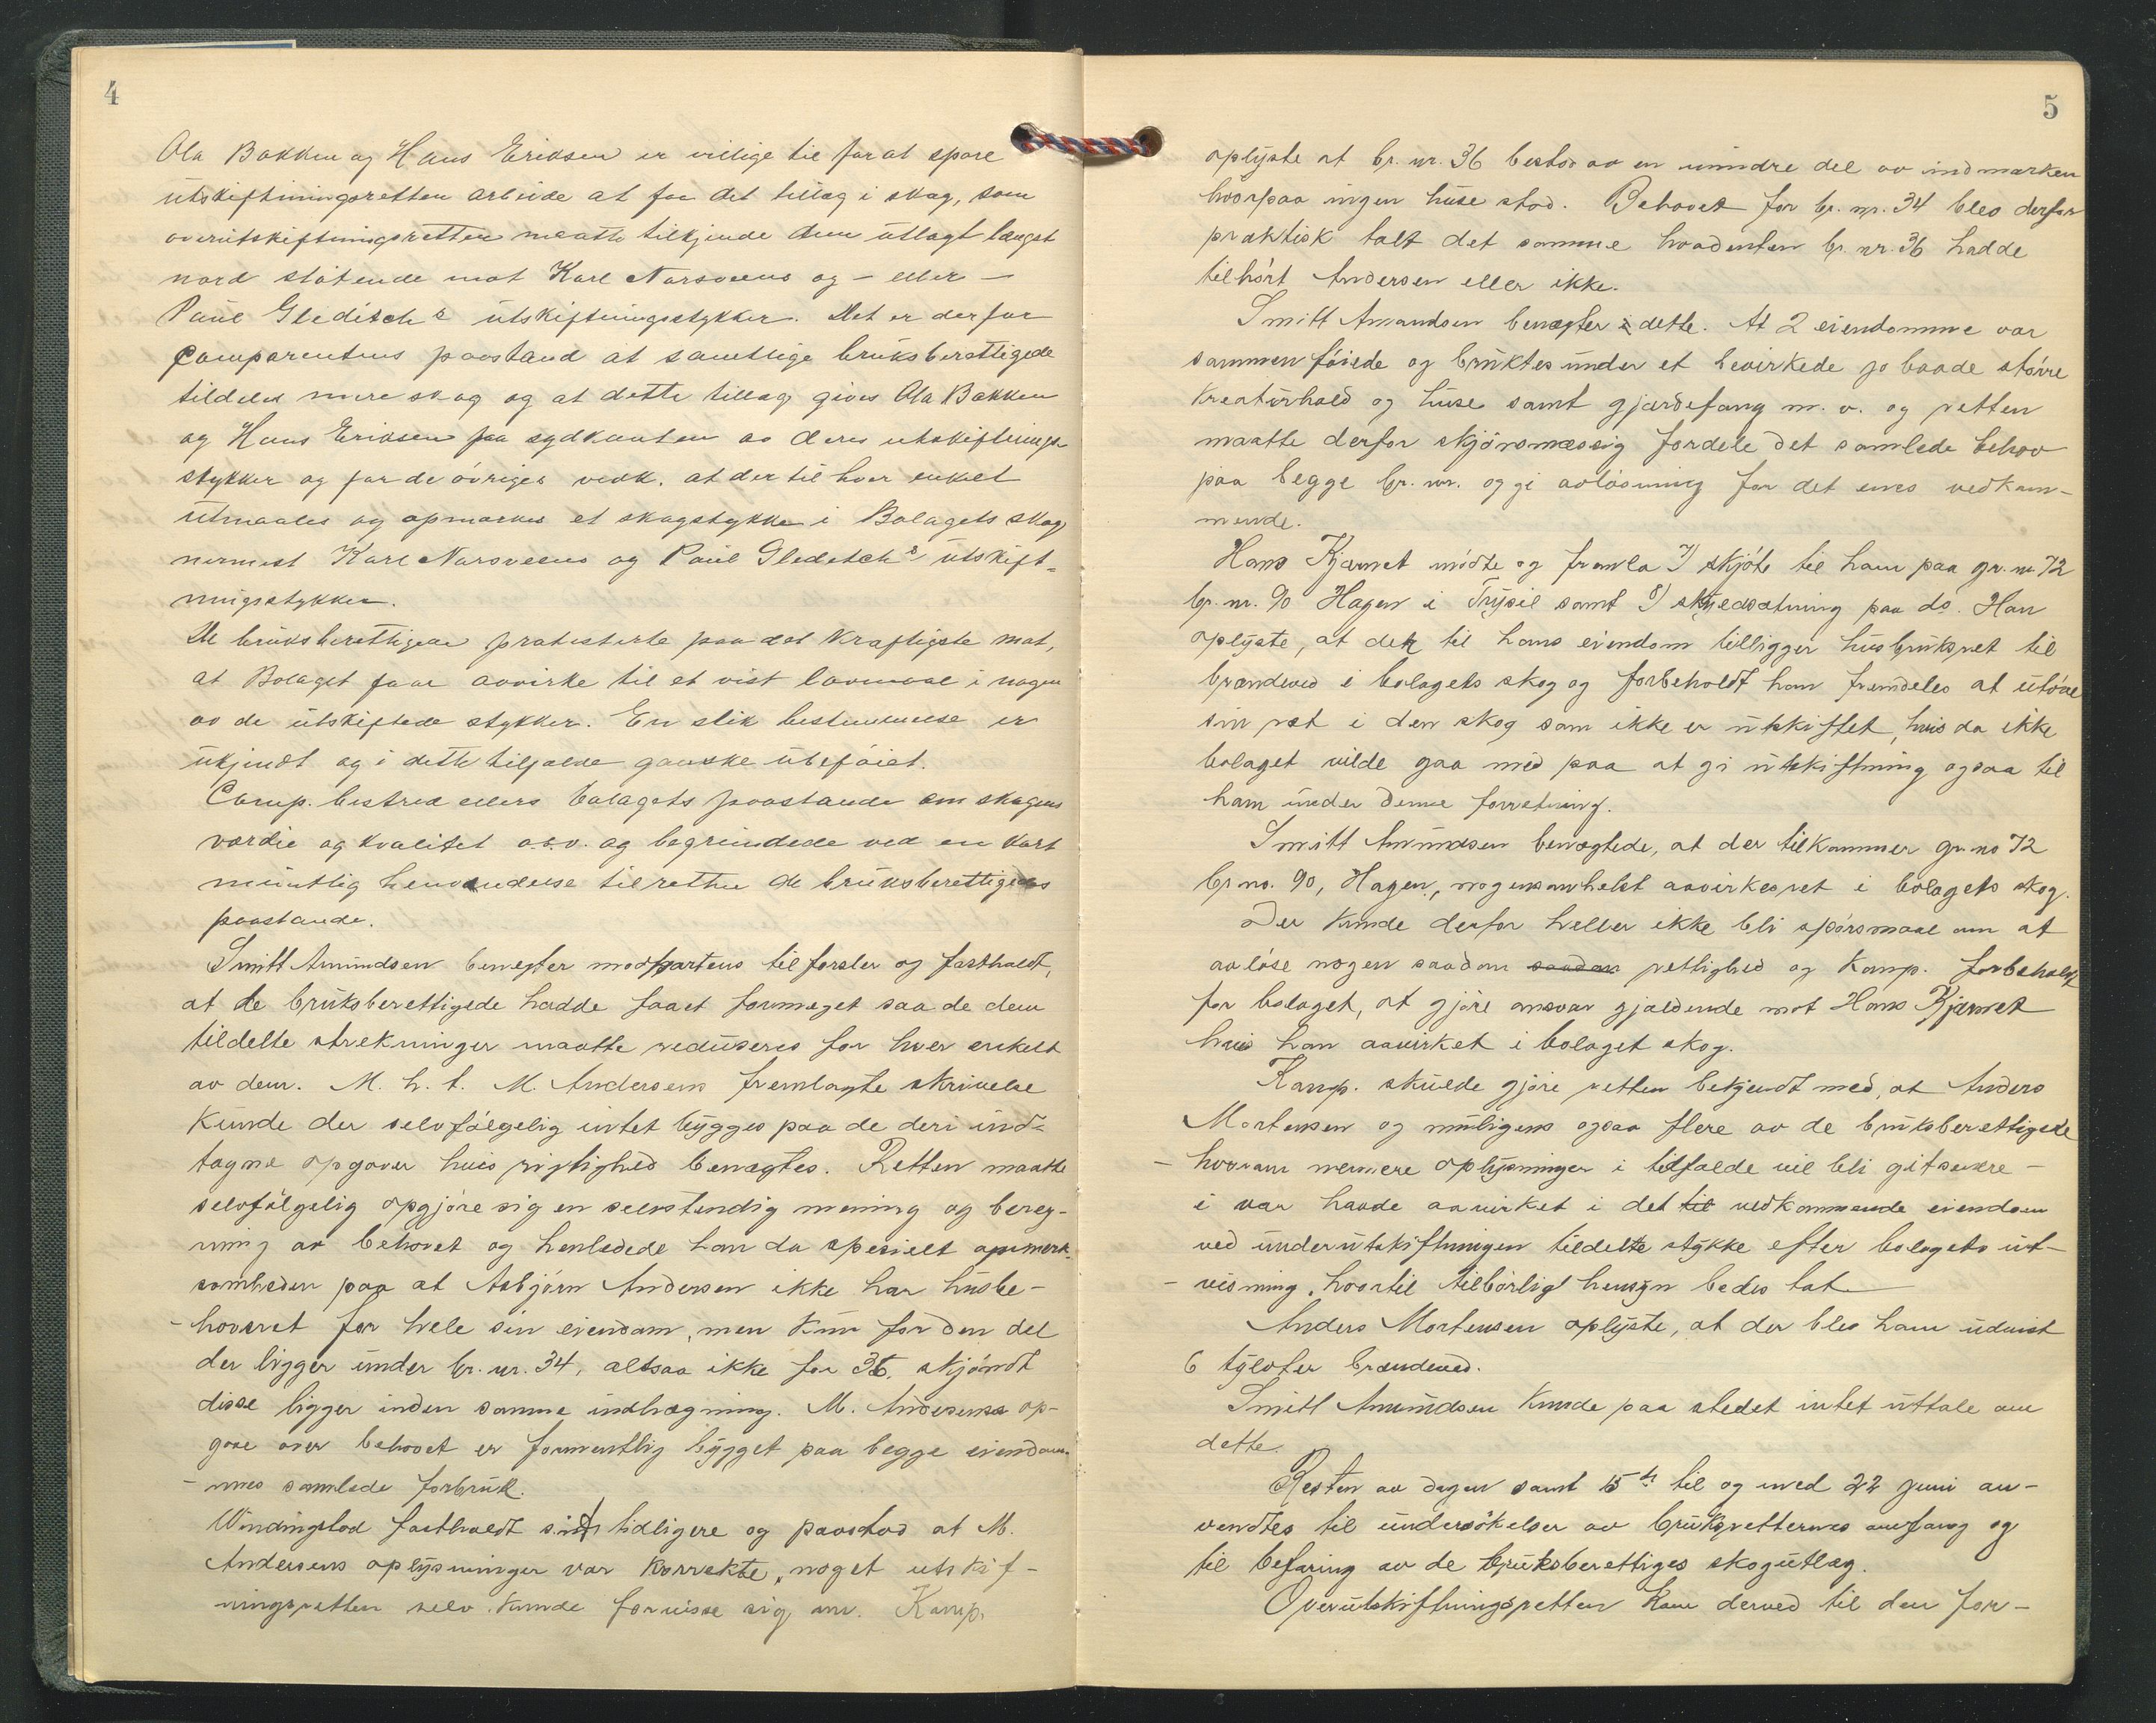 4
Ola Bakken og Hans Eriksen er villige til for at spare
utskiftningsretten arbeide at faa det tillæg i skog, som
overutskiftningsretten maatte tilkjende dem utlagt længst
nord støtende mot Karl Narsveens og – eller –
Paul Gleditsch's utskiftningsstykker. Det er derfor
Comparentens paastand at samtlige bruksberettigede
tildeles mere skog og at dette tillæg gives Ola Bakken
og Hans Eriksen paa sydkanten av deres utskiftnings-
stykker og for de øvriges vedk. at der til hver enkelt
utmaales og opmerkes et skogstykke i Bolagets skog
nermest Karl Narsveens og Paul Gleditsch's utskift-
ningsstykker.
De bruksberettigede protesterte paa det kraftigste mot,
at Bolaget faar avvirke til et vist lavmaal i nogen
av de utskiftede stykker. En slik bestemmelse er
ukjendt og i dette tilfælde ganske ubeføiet.
Comp. bestred ellers bolagets paastande om skogens
værdie og kvalitet o.s.v. og begrundede ved en kort
muntlig henvendelse til retten de bruksberettigedes
paastande.
Smitt Amundsen benegter modpartens tilførsler og fastholdt,
at de bruksberettigede hadde faaet formeget saa de dem
tildelte strekninger maatte reduseres for hver enkelt
av dem. M. h. t. M. Andersens fremlagte skrivelse
kunde der selvfølgelig intet bygges paa de deri ind-
tagne opgaver hvis rigtighed benægtes. Retten maatte
selvfølgelig opgjøre sig en selvstendig mening og bereg-
ning av behovet og henledede han da spesielt opmerk-
somheden paa at Asbjørn Andersen ikke har husbe-
- hovsret for hele sin eiendom, men kun for den del
der ligger under br. nr. 34, altsaa ikke for 36, skjøndt
disse ligger inden samme indhegning. M. Andersens op-
gave over behovet er formentlig bygget paa begge eiendom-
- mes samlede forbruk.
Windingstad fastholdt sit tidligere og paastod at M.
Andersens oplysninger var korrekte, noget utskif-
ningsretten selv kunde forvisse sig om. Komp.
5
oplyste at br. nr. 36 bestod av en mindre del av indmarken
hvorpaa ingen huse stod. Behovet for br. nr. 34 blev derfor
praktisk talt det samme hvadenten br. nr. 36 hadde
tilhørt Andersen eller ikke.
Smitt Amundsen benægter dette. At 2 eiendomme var
sammenføiede og bruktes under et bevirkede jo baade større
kreaturhold og huse samt gjærdefang m. v. og retten
maatte derfor skjønsmæssig fordele det samlede behov
paa begge br. nr. og gi avløsning for det enes vedkom-
mende.
Hans Kjærnet mødte og fremla 7) skjøte til ham paa gr. nr. 72
br. nr. 90 Hagen i Trysil samt 8) skyldsætning paa do. Han
oplyste, at der til hans eiendom tilligger husbruksret til
brændeved i bolagets skog og forbeholdt han fremdeles at utøve
sin ret i den skog som ikke er utskiftet, hvis da ikke
bolaget vilde gaa med paa at gi utskiftning ogsaa til
ham under denne forretning.
Smitt Amundsen benægtede, at der tilkommer gr. no 72
br. no. 90, Hagen, nogensomhelst avvirkesret i bolagets skog.
Der kunde derfor heller ikke bli spørsmaal om at
avløse nogen saadan saadan rettighed og Komp. forbeholdt
for bolaget, at gjøre ansvar gjældende mot Hans Kjærnet
hvis han avvirket i bolaget skog.
Komp. skulde gjøre retten bekjendt med, at Anders
Mortensen og muligens ogsaa flere av de bruksberettigede
- hvorom nermere oplysninger i tilfælde vil bli git senere -
i vaar havde avvirket i det til vedkommende eiendom
ved underutskiftningen tildelte stykke efter bolagets ut-
- visning, hvortil tilbørligt hensyn bedes tat.
Anders Mortensen oplyste, at der blev ham udvist
6 tylvter brændeved.
Smitt Amundsen kunde paa stedet intet uttale om
dette.
Resten av dagen samt 15de til og med 22 juni an-
vendtes til undersøkelser av bruksretternes omfang og
til befaring av de bruksberettiges skogutlæg.
Overutskiftningsretten kom derved til den for-